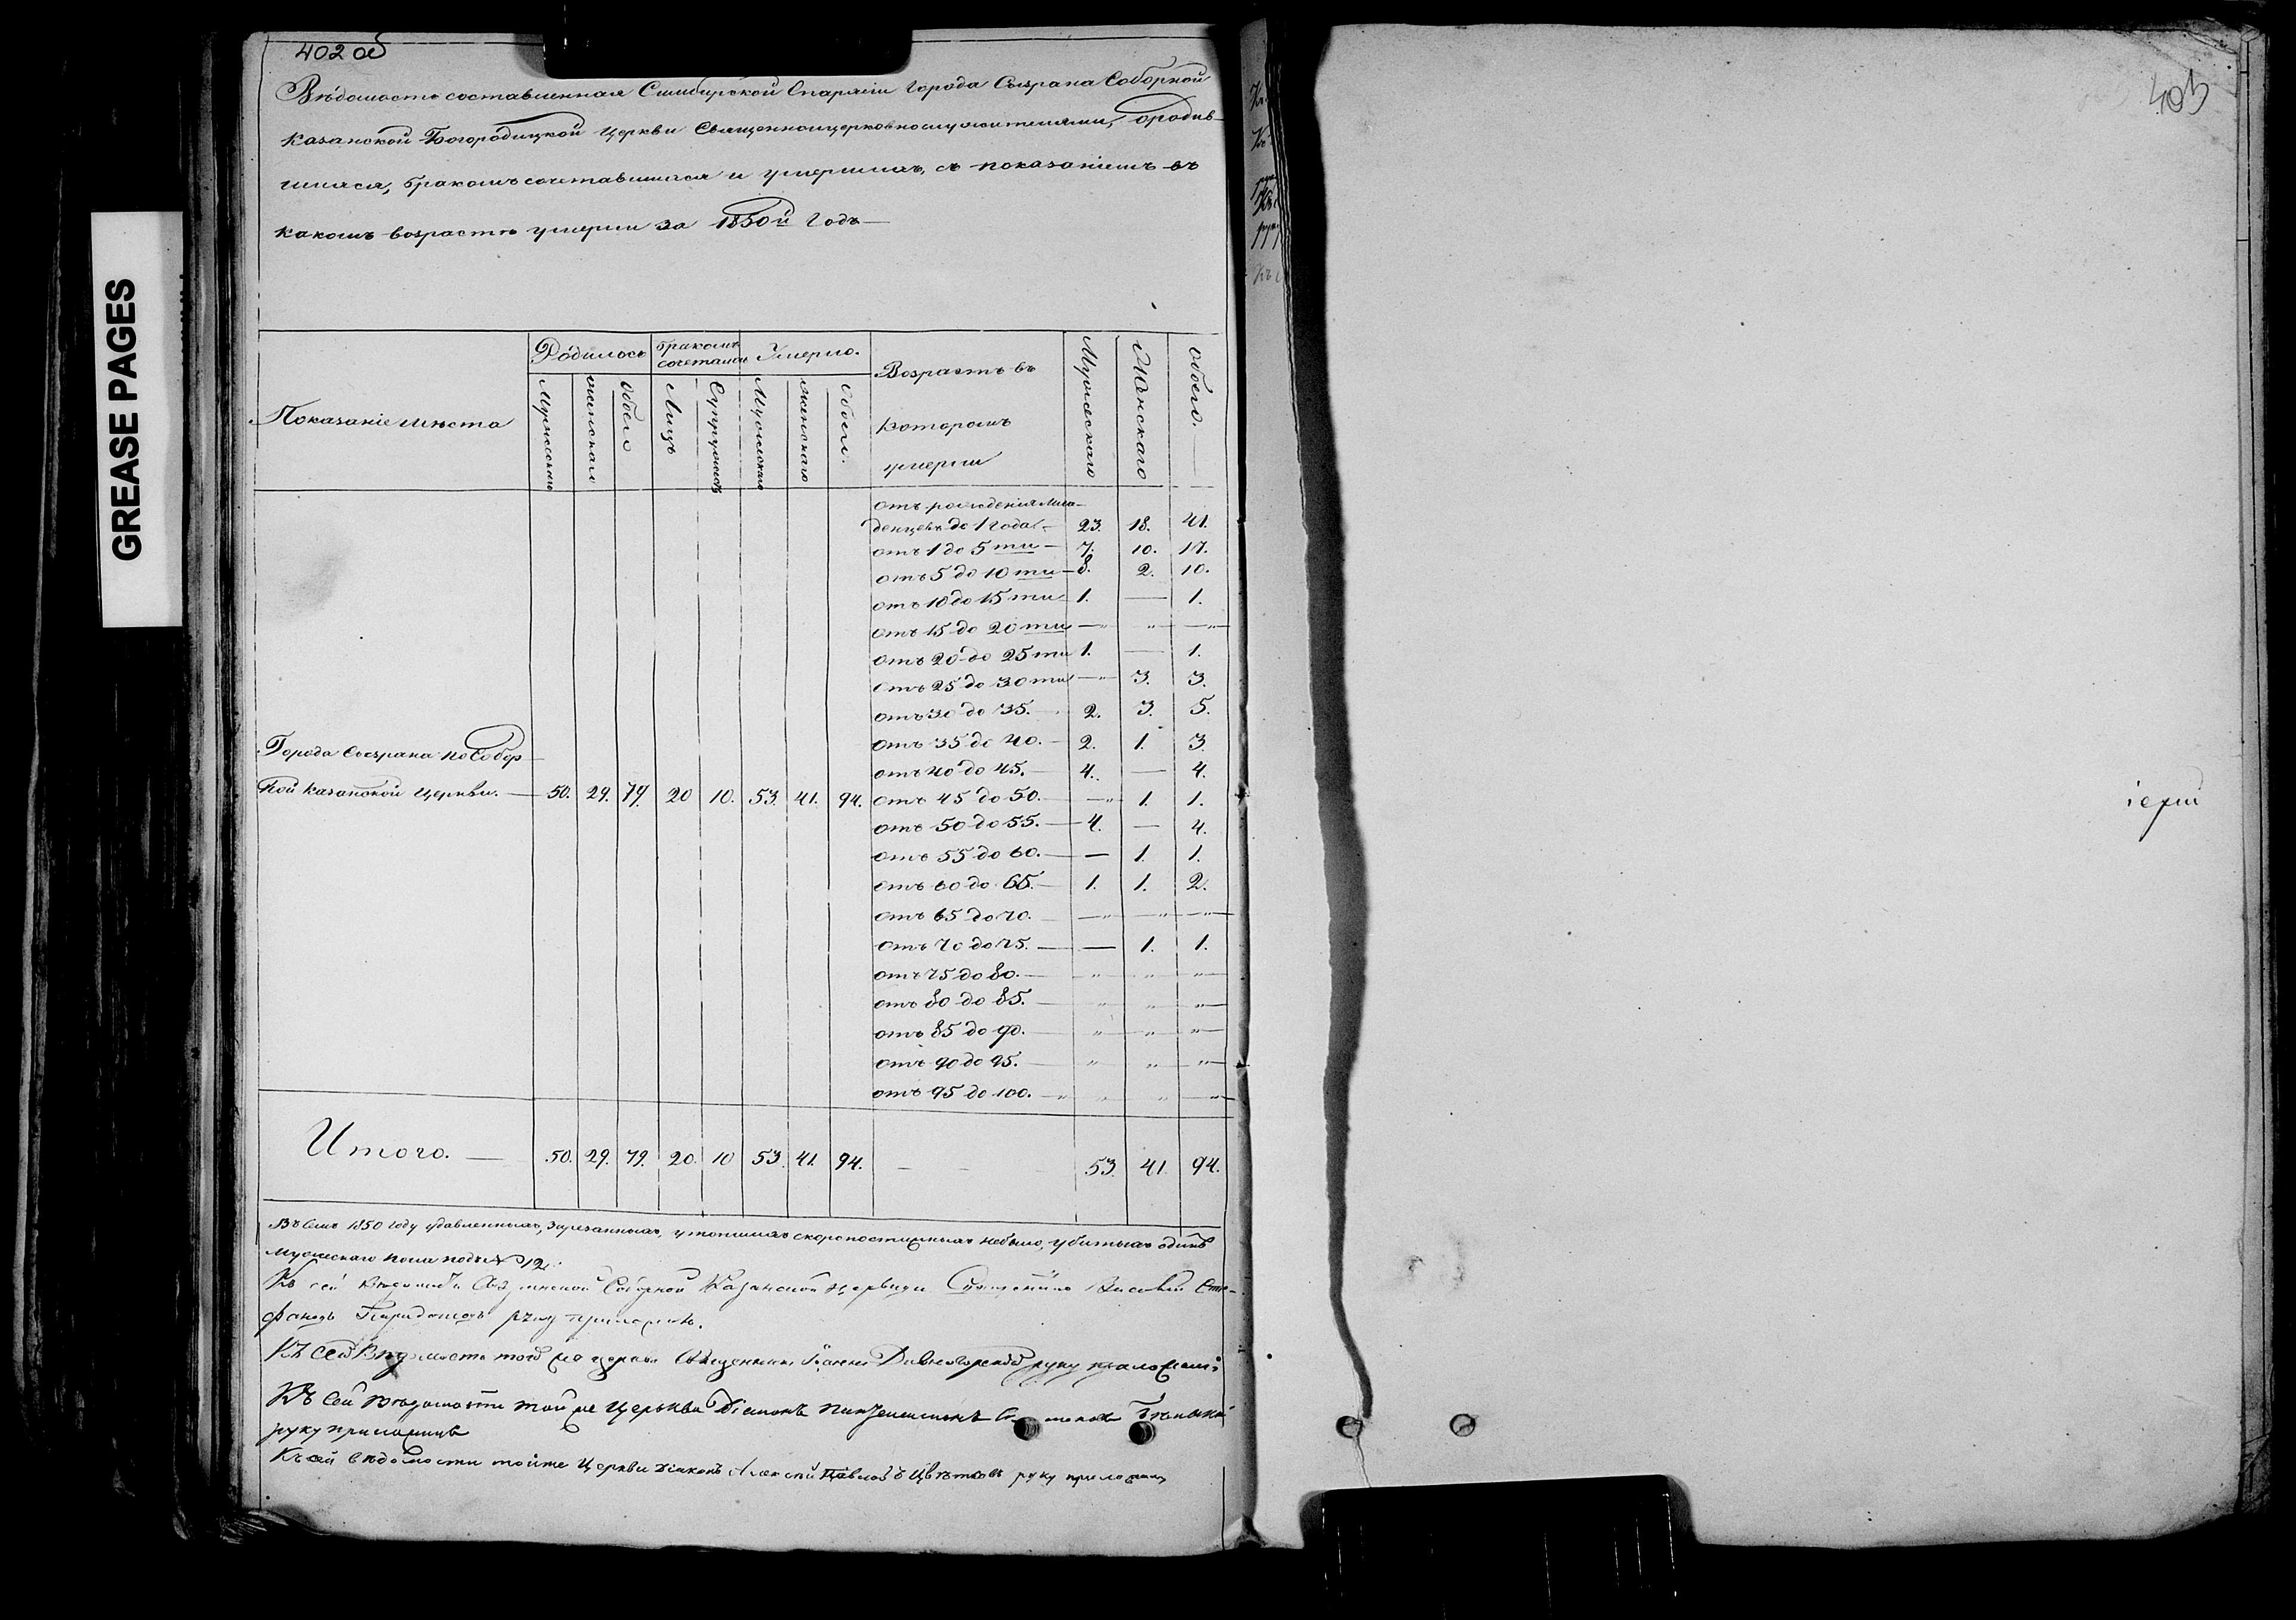 402 об
Вѣдомость составленная Симбирской Епархіи Города Сызрана Соборной
Казанской Богородицкой Церкви Священноцерковнослужителями, ородив-
шихся, бракомъ сочетавшихся и умершихъ, съ показаніемъ въ
какомъ возрастѣ умерли за 1850й Годъ
GREASE PAGES
Показаніе мѣста
Родилось
бракомъ сочетались
Умерло.
Мужескаго
женскаго
Обоего
Лицъ
Супружествъ
Мужескаго
женскаго
Обоего.
Возрастъ въ
которомъ
умерли
Мужескаго
Женскаго
Обоего.
отъ рожденія мла-
денцевъ до 1 года 23. 18. 41.
отъ 1 до 5 ти 7. 10. 17.
отъ 5 до 10 ти 8. 2. 10.
отъ 10 до 15 ти 1. — 1.
отъ 15 до 20 ти — „ — „ — „
отъ 20 до 25 ти 1. — 1.
отъ 25 до 30 ти — „ 3. 3.
отъ 30 до 35. 2. 3. 5.
отъ 35 до 40. 2. 1. 3.
отъ 40 до 45. 4. — 4.
Города Сызрана по Собор-
ной Казанской Церкви. 50. 29. 79. 20 10. 53. 41. 94. отъ 45 до 50. — „ 1. 1.
отъ 50 до 55. 4. — 4.
отъ 55 до 60. — 1. 1.
отъ 60 до 65. 1. 1. 2.
отъ 65 до 70. — „ — „ — „
отъ 70 до 75. — 1. 1.
отъ 75 до 80. „ „ „
отъ 80 до 85. „ „ „
отъ 85 до 90. „ „ „
отъ 90 до 95. „ „ „
отъ 95 до 100. „ „ „
Итого. 50. 29. 79. 20. 10 53. 41. 94. 53. 41. 94.
Въ семъ 1850 году удавленныхъ, зарезанныхъ, утопшихъ скоропостижныхъ небыло, убитыхъ одинъ
мужескаго пола подъ № 12.
Къ сей Соборной Казанской церкви
руку приложилъ.
Къ сей Вѣдомости той же церкви Священникъ Іоаннъ руку приложилъ
Къ сей вѣдомости той же Церкви Діаконъ
руку приложилъ
Къ сей вѣдомости тойже Церкви діаконъ Алексѣй Павловъ Цвѣтковъ руку приложилъ
403
іерей